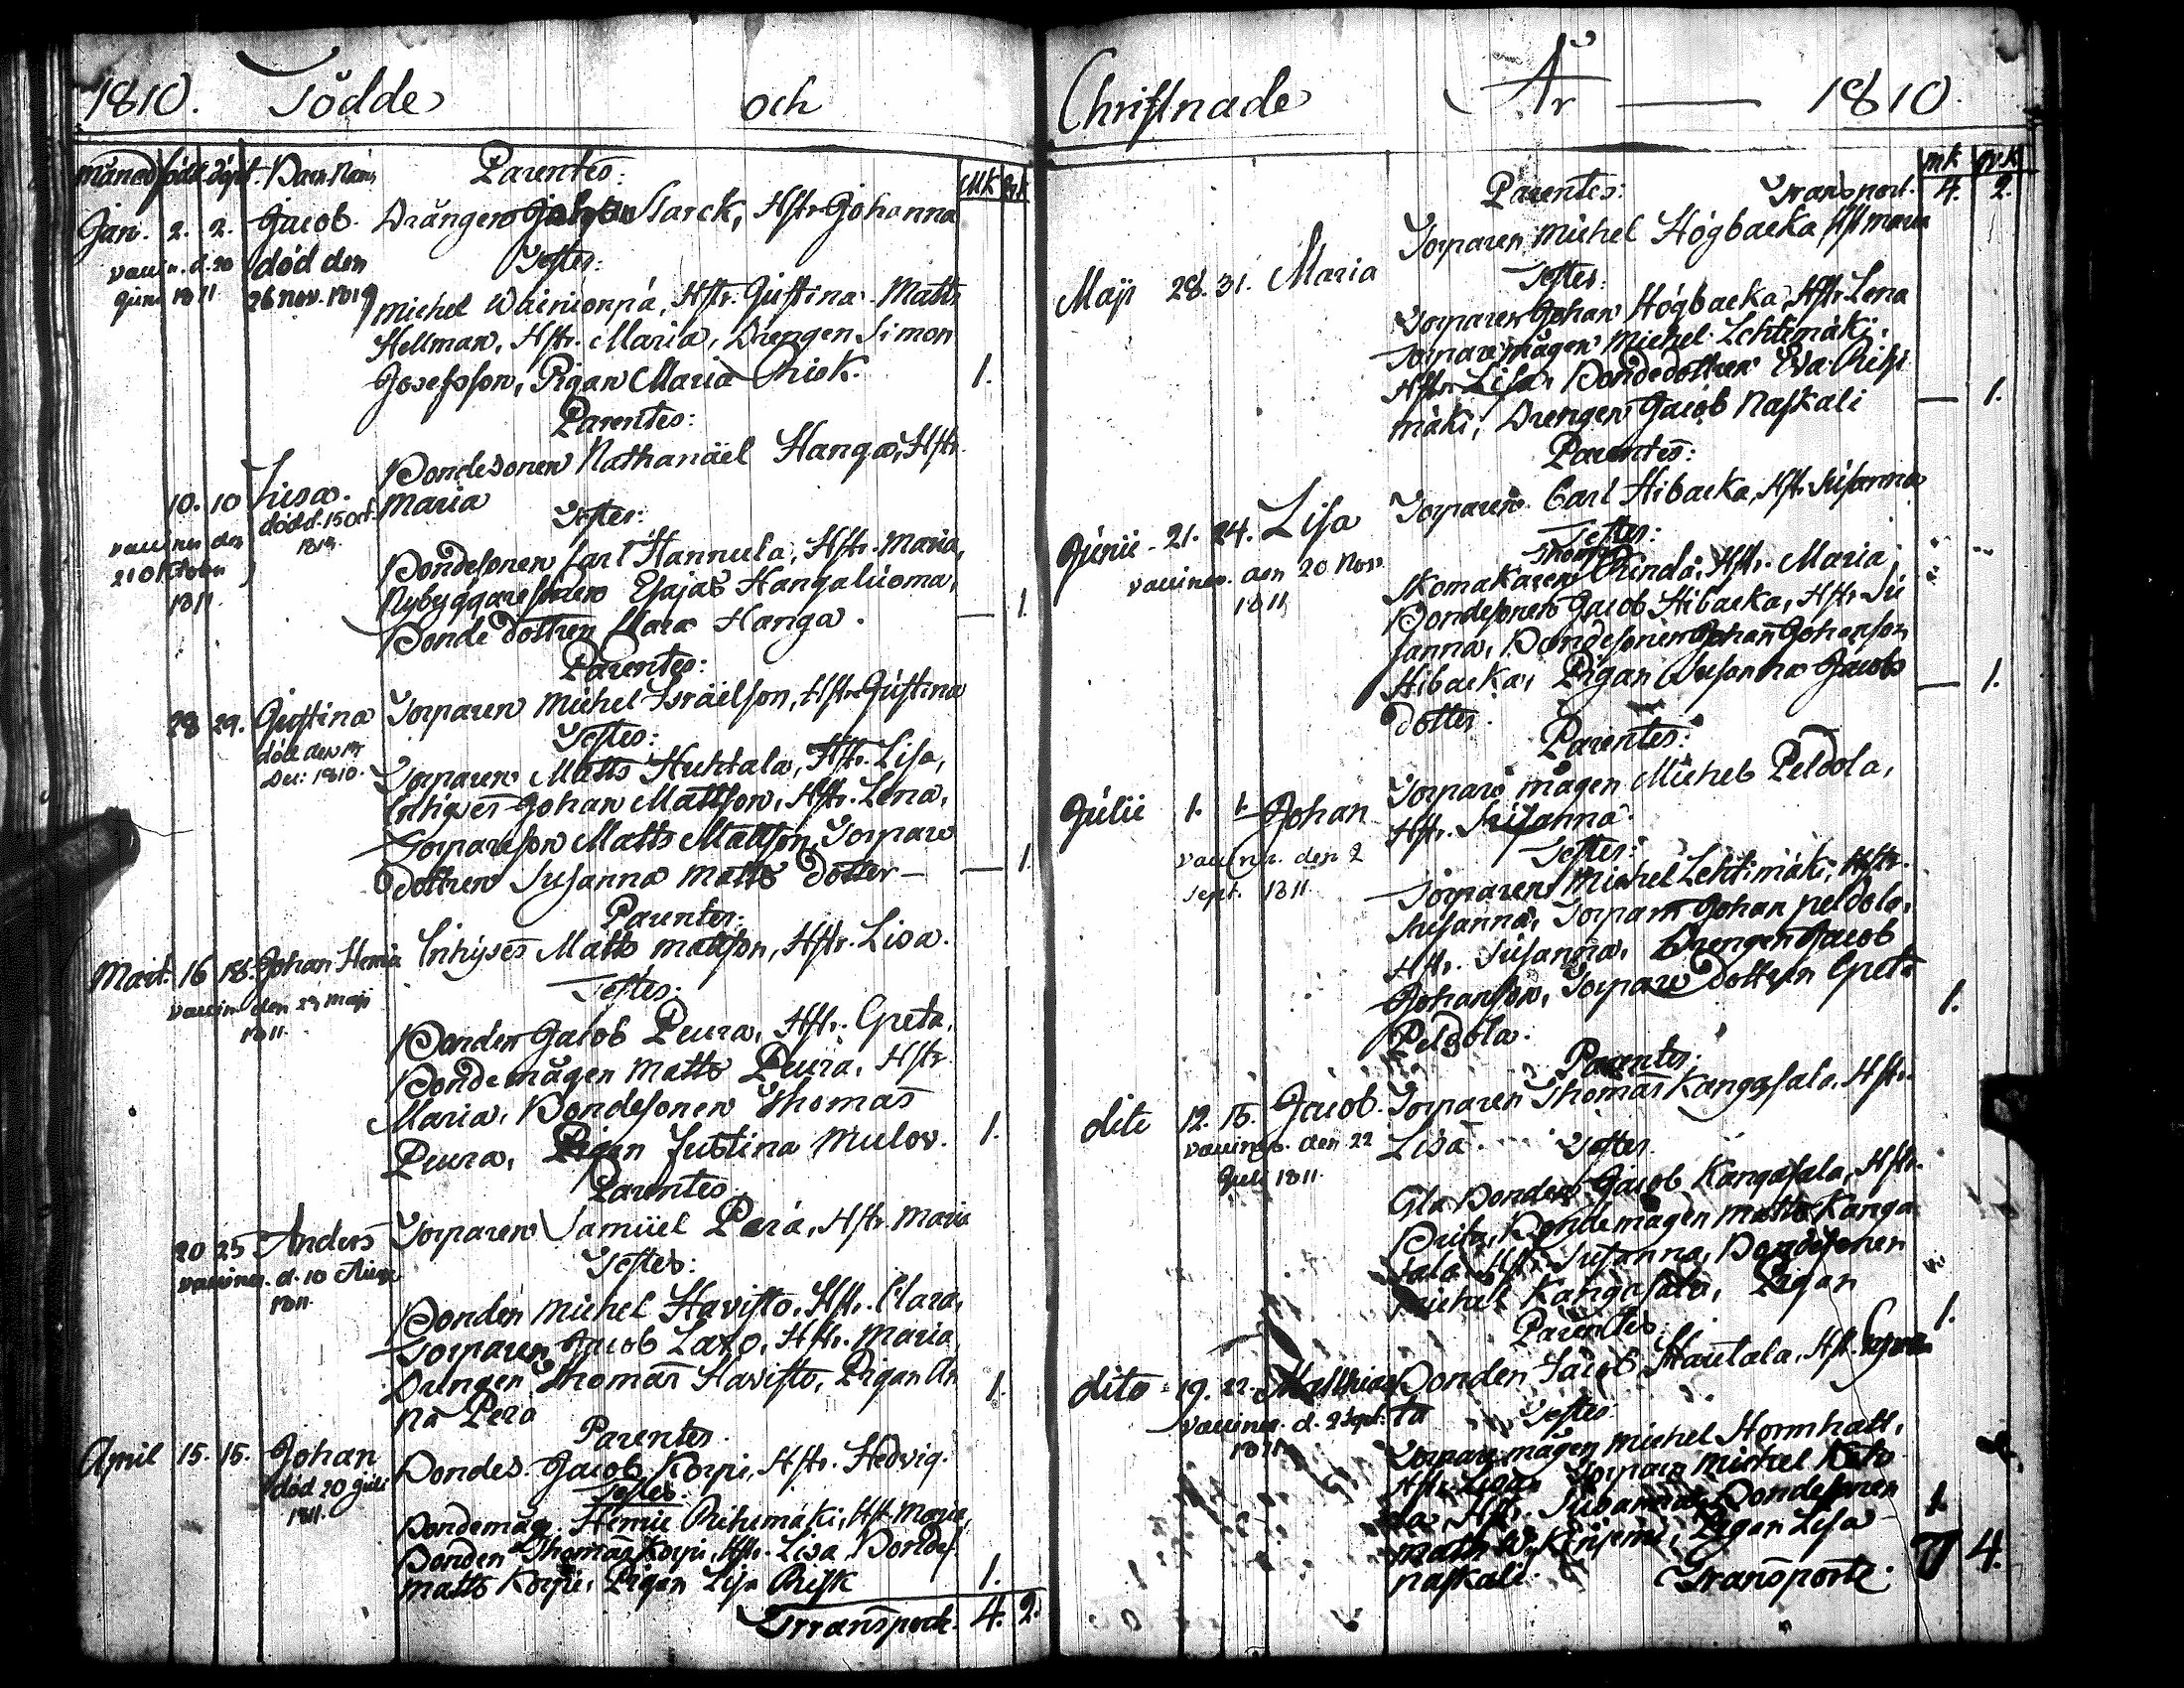 1810. Födde och
månad född döpt. Barn Namn Parentes: Mk Qvk
Jan. 2. 2. Jacob. Drängen Starck, Hstr Johanna
vaccin. d. 20 död den Testes:
Junii 1811 26 Nov. 1819
Michel Wainionpä, Hstr. Gustina. Matts
Hellman, Hstr. Maria, Drengen Simon
Josefsson, Pigan Maria Risk. 1.
Parentes:
Bondesonen Nathanäel Hanga, Hstr.
10. 10 Lisa. Maria
död d. 15 Oct. Testes:
vacciner. den 1819.
21 Oktober
1811
Bondesonen Carl Hannula, Hstr. Maria,
Nybyggaresonen Esajas Hangaluoma,
Bonde dottren Clara Hanga. — 1.
Parentes:
28 29. Gustina Torparen Michel Israëlson, Hstr Gustina
död den 19 Testes:
Dec: 1810.
Torparen Matts Huhtala, Hstr. Lisa,
Inhyses Johan Mattson, Hstr. Lena,
Torpareson Matts Mattson, Torpare
dottren Susanna Matts dotter — — 1.
Parentes:
Mart. 16 18. Johan Henric Inhyses Matts Mattson, Hstr. Lisa.
vaccin den 23 Maji Testes:
1811.
Bonden Jacob Peura, Hstr. Greta,
Bondemågen Matts Peura, Hstr.
Maria, Bondesonen Thomas
Peura, Pigan Justina Mulov. 1.
Parentes
20 25 Anders Torparen Samuel Perä, Hstr. Maria
vacciner. d. 10 Testes:
1811.
Bonden Michel Havisto, Hstr. Clara,
Torparen Jacob Laxo, Hstr. Maria,
Drengen Thomas Havisto, Pigan An
na Perä 1.
Parentes
April 15. 15. Johan Bondes. Jacob Korpi, Hstr. Hedvig.
död 20 Juli Testes:
1811.
Bondemåg. Henric Rihimäki, Hstr Maria,
Bonden Thomas Korpi, Hstr. Lisa, Bondes.
Matts Korpi, Pigan Lisa Risk 1.
Transport. 4. 2.
Christnade År — 1810.
mk qvk
Parentes: Transport. 4. 2.
Torparen Michel Högbacka, Hst Maria
Maji 28. 31. Maria Testes:
Torparen Johan Högbacka, Hstr Lena
Torparemågen Michel Lehtimäki,
Hstr. Lisa, Bondedottren Eva Rihi
mäki, Drengen Jacob Naskali — 1.
Parentes:
Junii. 21. 24. Lisa Torparen Carl Hibacka, Hstr. Susanna
vacciner. den 20 Nov. Testes:
1811, Thomas
Skomakaren Rinda, Hstr. Maria,
Bondesonen Jacob Hibacka, Hstr Su
sanna, Bondesonen Johan Johanson
Hibacka, Pigan Susanna Jacobs
dotter. — 1.
Parentes:
Julii 1. 1. Johan Torpare mågen Michel Peldola,
Hstr. Susanna.
vaccin. den 2 Testes:
Sept. 1811.
Torparen Michel Lehtimäki, Hstr.
Susanna, Torparen Johan Peldola,
Hstr. Susanna, Drengen Jacob
Johanson, Torpare dottren Greta
Peldola. 1.
Parentes:
dito 12. 15. Jacob. Torparen Thomas Kangasala, Hstr.
vacciner. den 22 Lisa. Testes.
Juli 1811.
Gla Bonden Jacob Kangasala, Hstr.
Brita, Bondemågen Matts Kanga
sala Hst. Susanna, Bondesonen
Michel Kangasala, Pigan 1.
Parentes:
dito 19. 22. Matthias Bonden Jacob Hautala, Hst.
vacciner. d. 2 Sept. Testes
1811
Torpare mågen Michel Hormhatt,
Hstr. Lisa, Torpare Michel
Hst. Susanna, Bondesonen 1.
Pigan Lisa
Naskali. Transporte. 7 4.